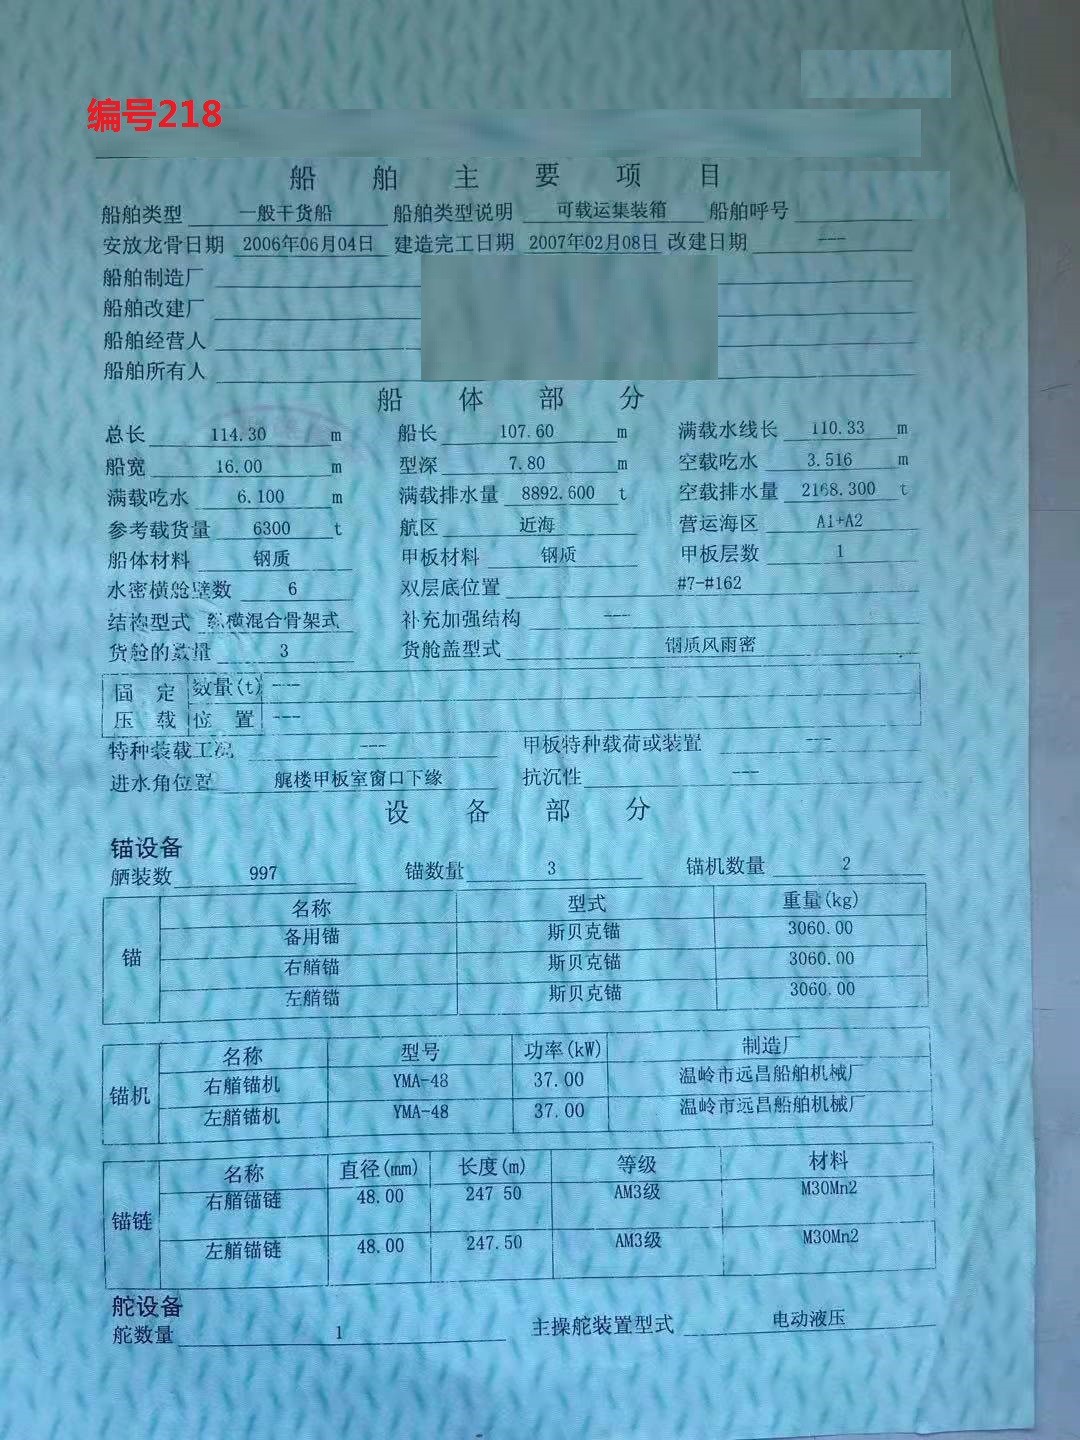 编号218
船舶主要项目
船舶类型 一般干货船 船舶类型说明 可载运集装箱 船舶呼号
安放龙骨日期 2006年06月04日 建造完工日期 2007年02月08日 改建日期 ---
船舶制造厂
船舶改建厂
船舶经营人
船舶所有人
船体部分
总长 114.30 m 船长 107.60 m 满载水线长 110.33 m
船宽 16.00 m 型深 7.80 m 空载吃水 3.516 m
满载吃水 6.100 m 满载排水量 8892.600 t 空载排水量 2168.300 t
参考载货量 6300 t 航区 近海 营运海区 A1+A2
船体材料 钢质 甲板材料 钢质 甲板层数 1
水密横舱壁数 6 双层底位置 #7-#162
结构型式 纵横混合骨架式 补充加强结构 ---
货舱的数量 3 货舱盖型式 钢质风雨密
固定 数量(t) ---
压载 位置 ---
特种装载工况 --- 甲板特种载荷或装置 ---
进水角位置 艉楼甲板室窗口下缘 抗沉性 ---
设备部分
锚设备
舾装数 997 锚数量 3 锚机数量 2
锚 名称 型式 重量(kg)
备用锚 斯贝克锚 3060.00
右艏锚 斯贝克锚 3060.00
左艏锚 斯贝克锚 3060.00
锚机 名称 型号 功率(kW) 制造厂
右艏锚机 YMA-48 37.00 温岭市远昌船舶机械厂
左艏锚机 YMA-48 37.00 温岭市远昌船舶机械厂
锚链 名称 直径(mm) 长度(m) 等级 材料
右艏锚链 48.00 247 50 AM3级 M30Mn2
左艏锚链 48.00 247.50 AM3级 M30Mn2
舵设备
舵数量 1 主操舵装置型式 电动液压